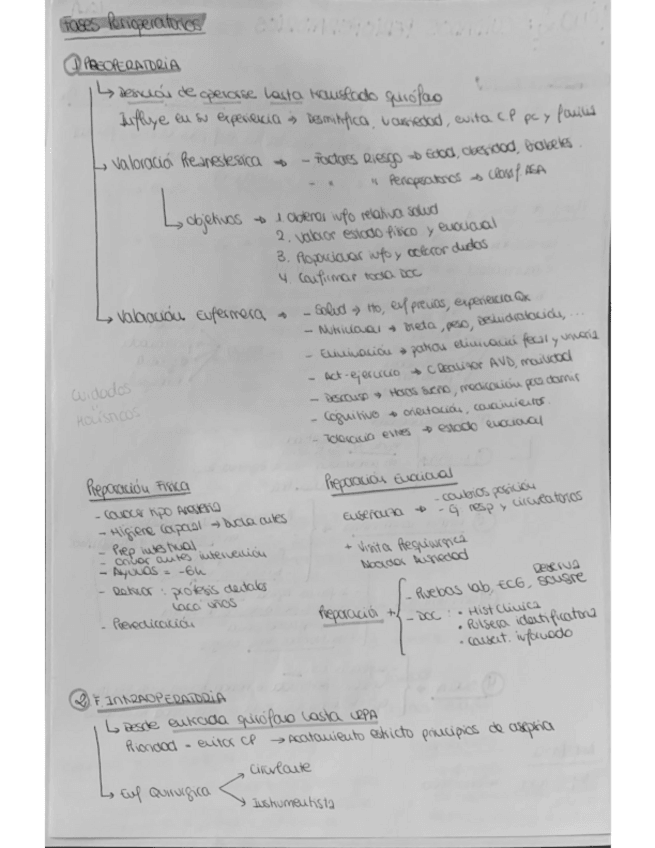 Fases Perioperatorias
① PREOPERATORIA
↳ Decisión de operarse hasta traslado quirófano
Influye en su experiencia → Desmitifica, ↓ ansiedad, evita CP pc y familia
→ Valoració Preanestesica → - Factores Riesgo → Edad, obesidad, Diabetes.
- " " Perioperatorios → Classif ASA
↳ objetivos → 1. Obtener info relativa salud
2. Valorar estado físico y emocional
3. Proporcionar info y aclarar dudas
4. Confirmar toda DOC
→ Valoración Enfermera → - Salud → Hª, enf previas, experiencia Qx
- Nutricional → Dieta, peso, Deshidratación, ...
- Eliminación → patrón eliminació fecal y urinaria
- Act-ejercicio → AVD, movilidad
- Descanso → Horas sueño, medicación para dormir
- Cognitivo → orientación, conocimientos.
- Tolerancia estrés → estado emocional
Cuidados
Holísticos
Preparación Física
- Conocer tipo Anestesia
- Higiene corporal → Ducha antes
- Prep intestinal
- antes intervención
- Ayunas = -6h
- Retirar: prótesis dentales
laca uñas
- Premedicación
Preparación Emocional
Enseñanza → - cambios posición
- Ej resp y circulatorios
+ Visita Prequirurgica
Ansiedad
Preparació + { - Pruebas lab, ECG, Reserva sangre
- DOC: • Hist Clínica
• Pulsera identificativa
• Consent. informado
② F. INTRAOPERATORIA
↳ Desde entrada quirófano hasta URPA
Prioridad = evitar CP → Acatamiento estricto principios de asepsia
↳ Enf Quirurgica < Circulante
Instrumentista